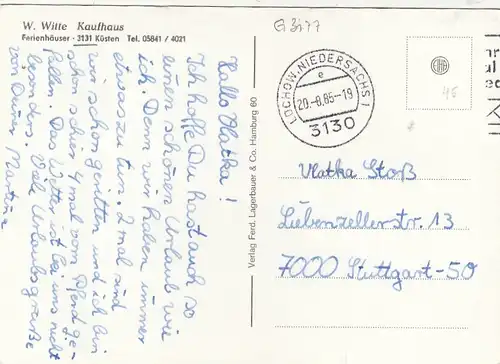 W. Witte Kaufhaus
Ferienhäuser - 3131 Küsten Tel. 05841 / 4021
Hallo Vlatka!
Ich hoffe Du hast auch so
einen schönen Urlaub wie
ich. Denn wir haben immer
etwas zu tun. 2 mal sind
wir schon geritten und ich bin
schon 4 mal vom Pferd ge-
fallen. Das Wetter ist bei uns nicht
besonders. Viele Urlaubsgrüße
von Deiner Martina
Verlag Ferd. Lagerbauer & Co. Hamburg 60
G 3177
LÜCHOW, NIEDERSACHS 1
e
20.-8.85-19
3130
45
Vlatka Stoß
Liebenzellerstr. 13
7000 Stuttgart-50